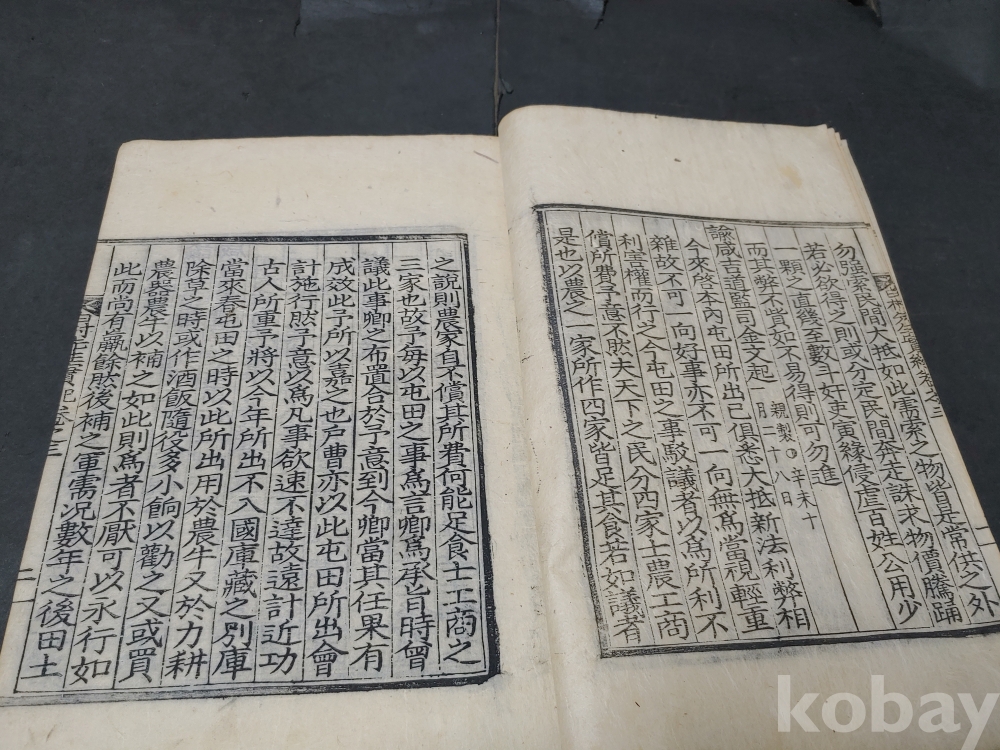 勿強索民間大抵如此需索之物皆是常供之外
若必欲得之則或分定民間奔走誅求物價騰踊
一顆之直幾至數斗奸吏夤緣侵虐百姓公用少
而其弊不貲如不易得則可勿進
諭咸吉道監司金文起 親製○辛未十
月二十八日
今來啓本內屯田所出已俱悉大抵新法利弊相
雜故不可一向好事亦不可一向無爲當視輕重
利害權而行之今屯田之事駁議者以爲所利不
償所費予意不然夫天下之民分四家士農工商
是也以農之一家所作四家皆足其食若如議者
之說則農家自不償其所費何能足食士工商之
三家也故予每以屯田之事爲言卿爲承旨時曾
議此事卿之布置合於予意到今卿當其任果有
成效此予所以嘉之也戶曹亦以此屯田所出會
計施行然予意以爲凡事欲速不達故遠計近功
古人所重予將以今年所出不入國庫藏之別庫
當來春屯田之時以此所出用於農牛又於力耕
除草之時或作酒飯隨役多小餉以勸之又或買
農與農牛以補之如此則爲者不厭可以永行如
此而尚有贏餘然後補之軍需况數年之後田土
二
kobay